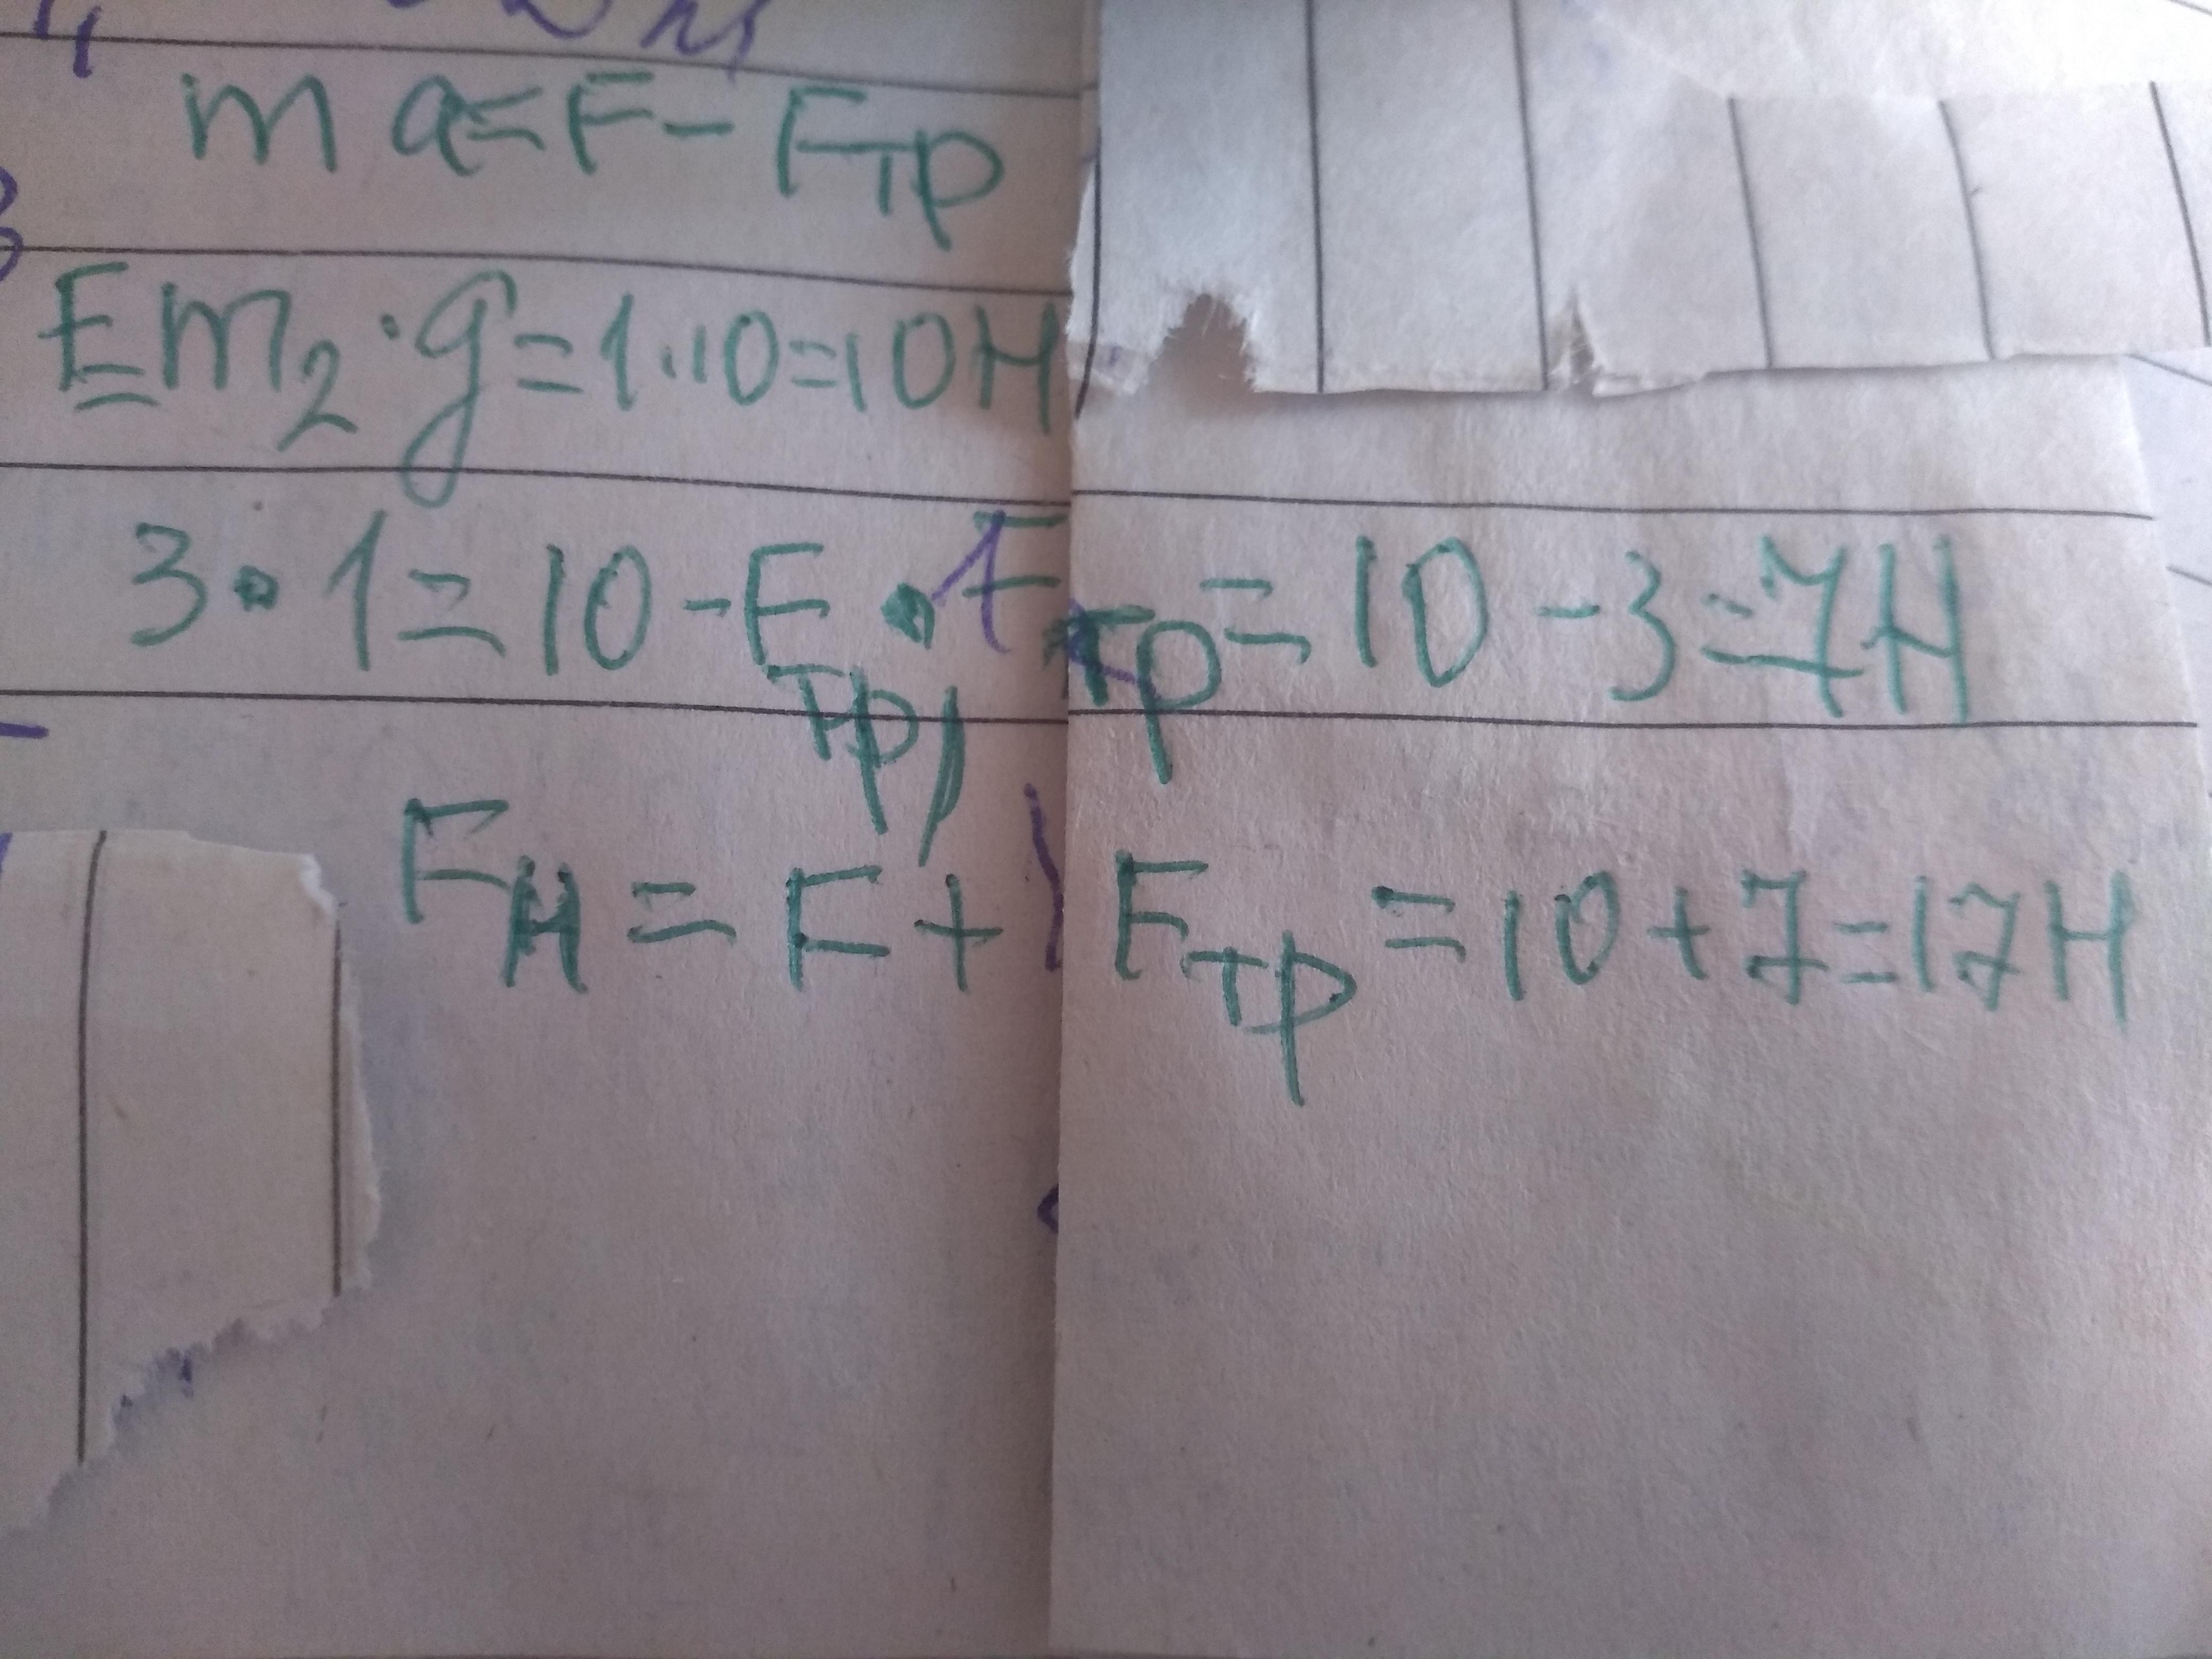 ma=F-Fтр
F=m₂·g=1·10=10Н
3·1=10-Fтр, Fтр=10-3=7Н
Fн=F+Fтр=10+7=17Н